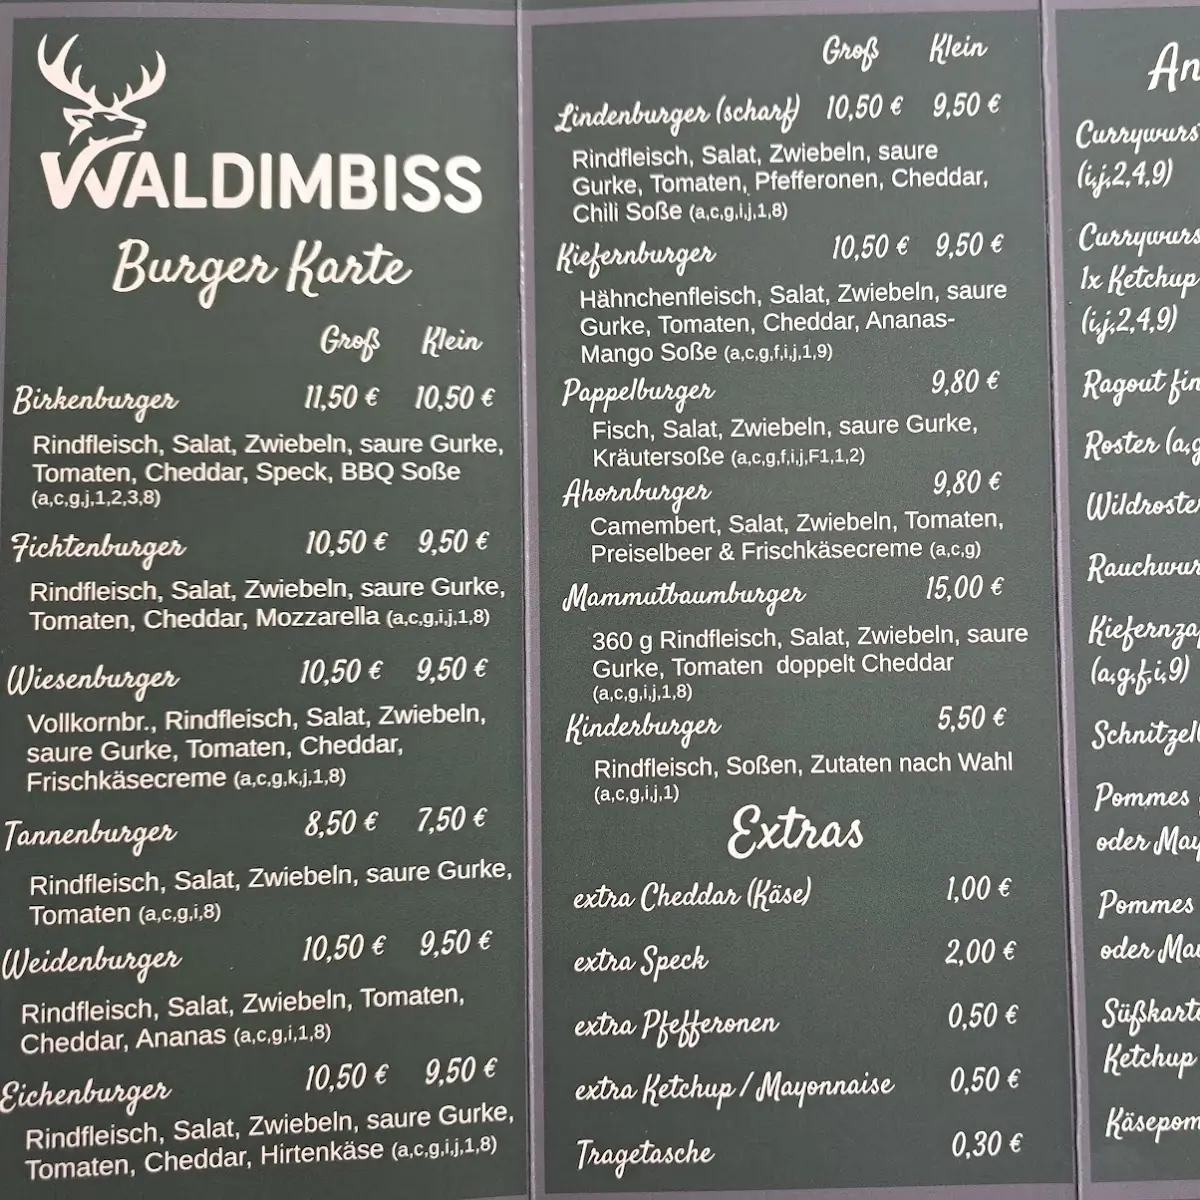 WALDIMBISS
Burger Karte
Groß Klein
Birkenburger 11,50 € 10,50 €
Rindfleisch, Salat, Zwiebeln, saure Gurke,
Tomaten, Cheddar, Speck, BBQ Soße
(a,c,g,j,1,2,3,8)
Fichtenburger 10,50 € 9,50 €
Rindfleisch, Salat, Zwiebeln, saure Gurke,
Tomaten, Cheddar, Mozzarella (a,c,g,i,j,1,8)
Wiesenburger 10,50 € 9,50 €
Vollkornbr., Rindfleisch, Salat, Zwiebeln,
saure Gurke, Tomaten, Cheddar,
Frischkäsecreme (a,c,g,k,j,1,8)
Tannenburger 8,50 € 7,50 €
Rindfleisch, Salat, Zwiebeln, saure Gurke,
Tomaten (a,c,g,i,8)
Weidenburger 10,50 € 9,50 €
Rindfleisch, Salat, Zwiebeln, Tomaten,
Cheddar, Ananas (a,c,g,i,1,8)
Eichenburger 10,50 € 9,50 €
Rindfleisch, Salat, Zwiebeln, saure Gurke,
Tomaten, Cheddar, Hirtenkäse (a,c,g,i,j,1,8)
Groß Klein
Lindenburger (scharf) 10,50 € 9,50 €
Rindfleisch, Salat, Zwiebeln, saure
Gurke, Tomaten, Pfefferonen, Cheddar,
Chili Soße (a,c,g,i,j,1,8)
Kiefernburger 10,50 € 9,50 €
Hähnchenfleisch, Salat, Zwiebeln, saure
Gurke, Tomaten, Cheddar, Ananas-
Mango Soße (a,c,g,f,i,j,1,9)
Pappelburger 9,80 €
Fisch, Salat, Zwiebeln, saure Gurke,
Kräutersoße (a,c,g,f,i,j,F1,1,2)
Ahornburger 9,80 €
Camembert, Salat, Zwiebeln, Tomaten,
Preiselbeer & Frischkäsecreme (a,c,g)
Mammutbaumburger 15,00 €
360 g Rindfleisch, Salat, Zwiebeln, saure
Gurke, Tomaten doppelt Cheddar
(a,c,g,i,j,1,8)
Kinderburger 5,50 €
Rindfleisch, Soßen, Zutaten nach Wahl
(a,c,g,i,j,1)
Extras
extra Cheddar (Käse) 1,00 €
extra Speck 2,00 €
extra Pfefferonen 0,50 €
extra Ketchup / Mayonnaise 0,50 €
Tragetasche 0,30 €
An
Currywurst
(i,j,2,4,9)
Currywurs
1x Ketchup
(i,j,2,4,9)
Ragout fin
Roster (a,g
Wildroster
Rauchwur
Kiefernza
(a,g,f,i,9)
Schnitzel
Pommes
oder May
Pommes
oder Ma
Süßkarto
Ketchup
Käsepom